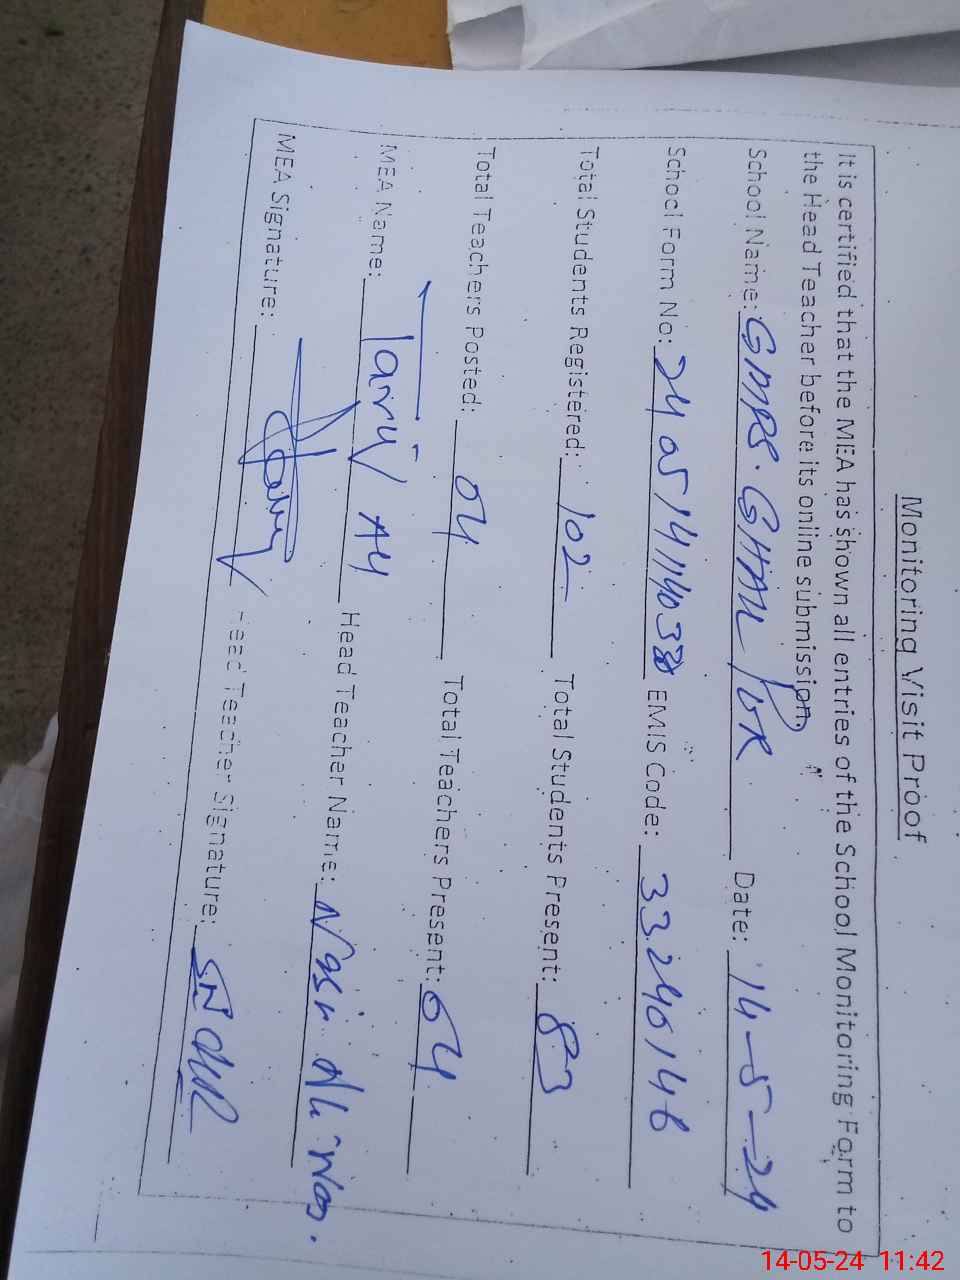 Monitoring Visit Proof
It is certified that the MEA has shown all entries of the School Monitoring Form to
the Head Teacher before its online submission.
School Name: GMPS. Date: 14-5-24
School Form No: EMIS Code: 33240146
Total Students Registered: 102 Total Students Present: 83
Total Teachers Posted: 04 Total Teachers Present: 04
MEA Name: Tariq Head Teacher Name:
MEA Signature: Head Teacher Signature:
14-05-24 11:42